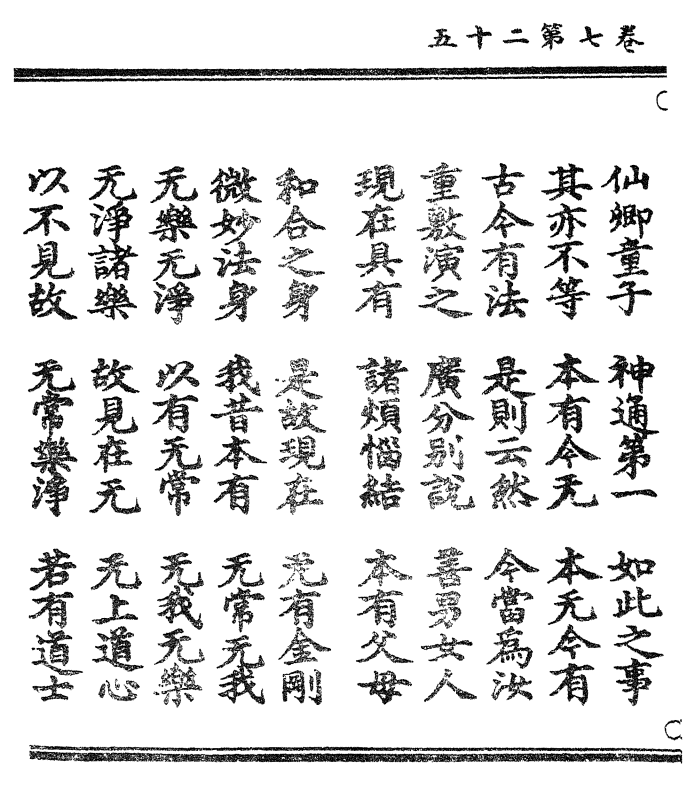 卷七第二十五
仙卿童子 神通第一 如此之事
其亦不等 本有今无 本无今有
古今有法 是則云然 今當爲汝
重敷演之 廣分別說 善男女人
現在具有 諸煩惱結 本有父母
和合之身 是故現在 无有金剛
微妙法身 我昔本有 无常无我
无樂无淨 以有无常 无我无樂
无淨諸樂 故見在无 无上道心
以不見故 无常樂淨 若有道士